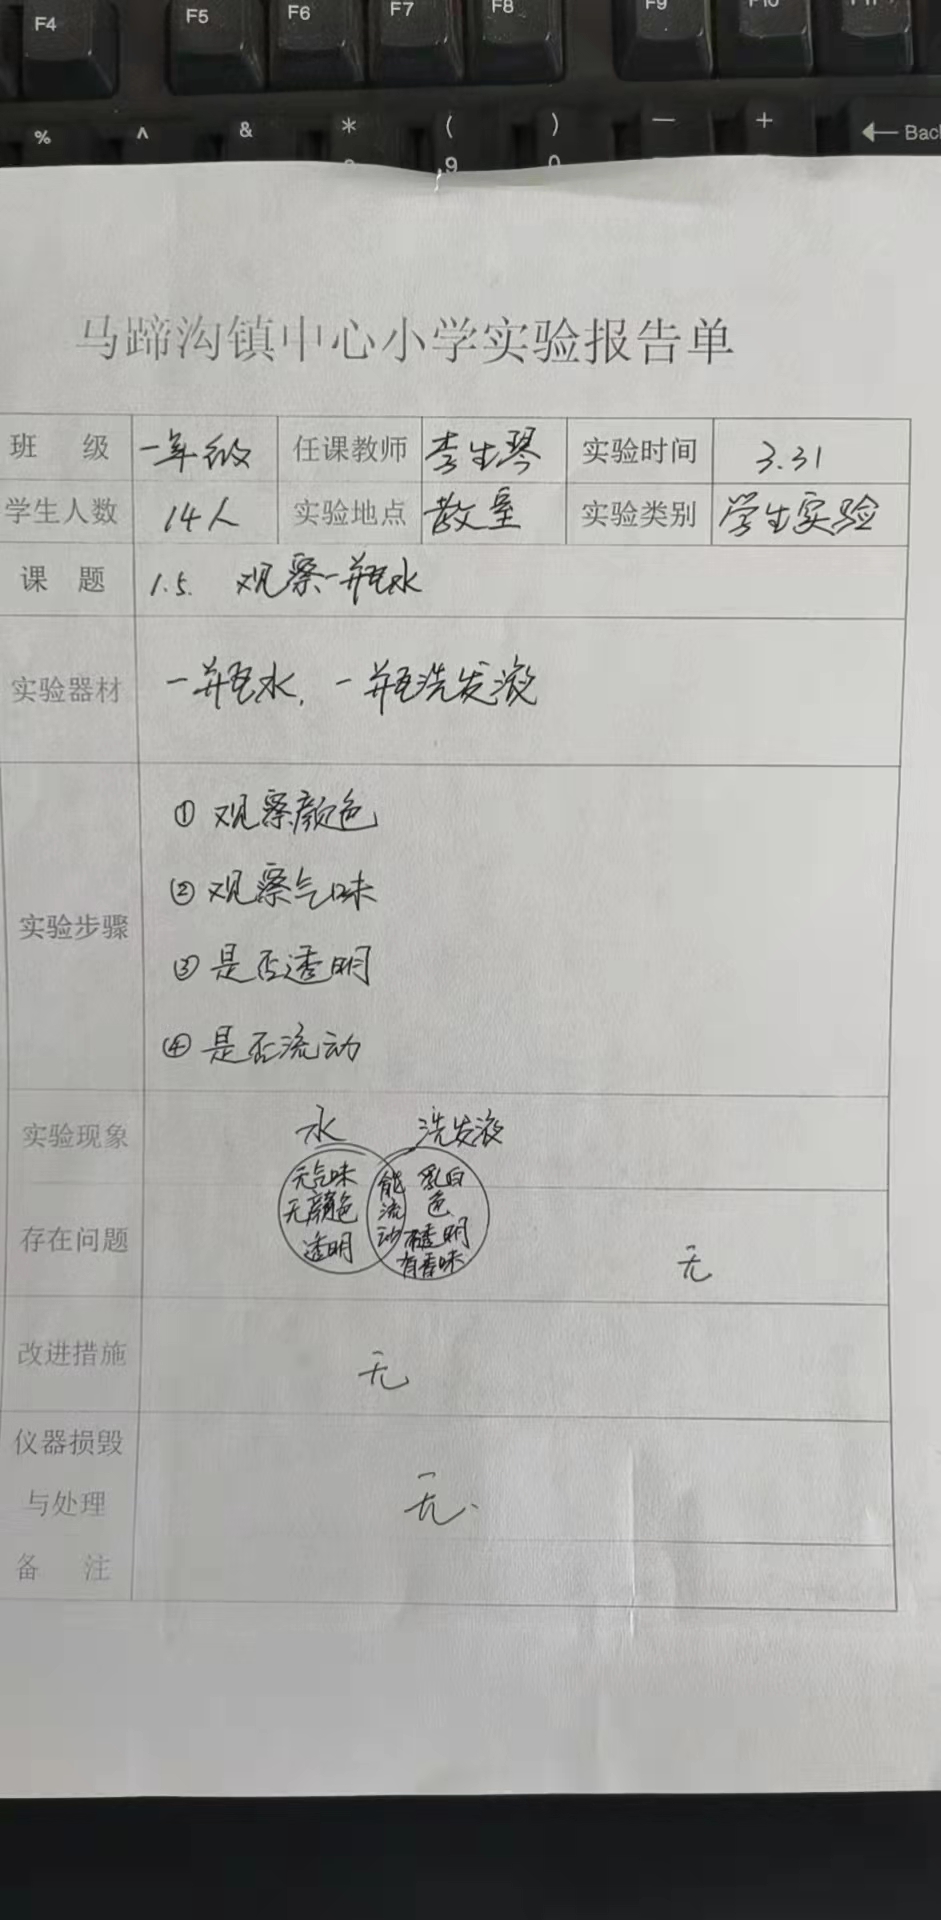 F4 F5 F6 F7 F8 F9 F10 F11
% ^ & * ( ) — + ← Back
9 0
马蹄沟镇中心小学实验报告单
班 级 一年级 任课教师 李生琴 实验时间 3.31
学生人数 14人 实验地点 教室 实验类别 学生实验
课 题 1.5. 观察一瓶水
实验器材 一瓶水, 一瓶洗发液
实验步骤
① 观察颜色
② 观察气味
③ 是否透明
④ 是否流动
实验现象 水 洗发液
无气味
无颜色
透明
能流动
乳白色
不透明
有香味
存在问题 无
改进措施 无
仪器损毁
与处理 无.
备 注